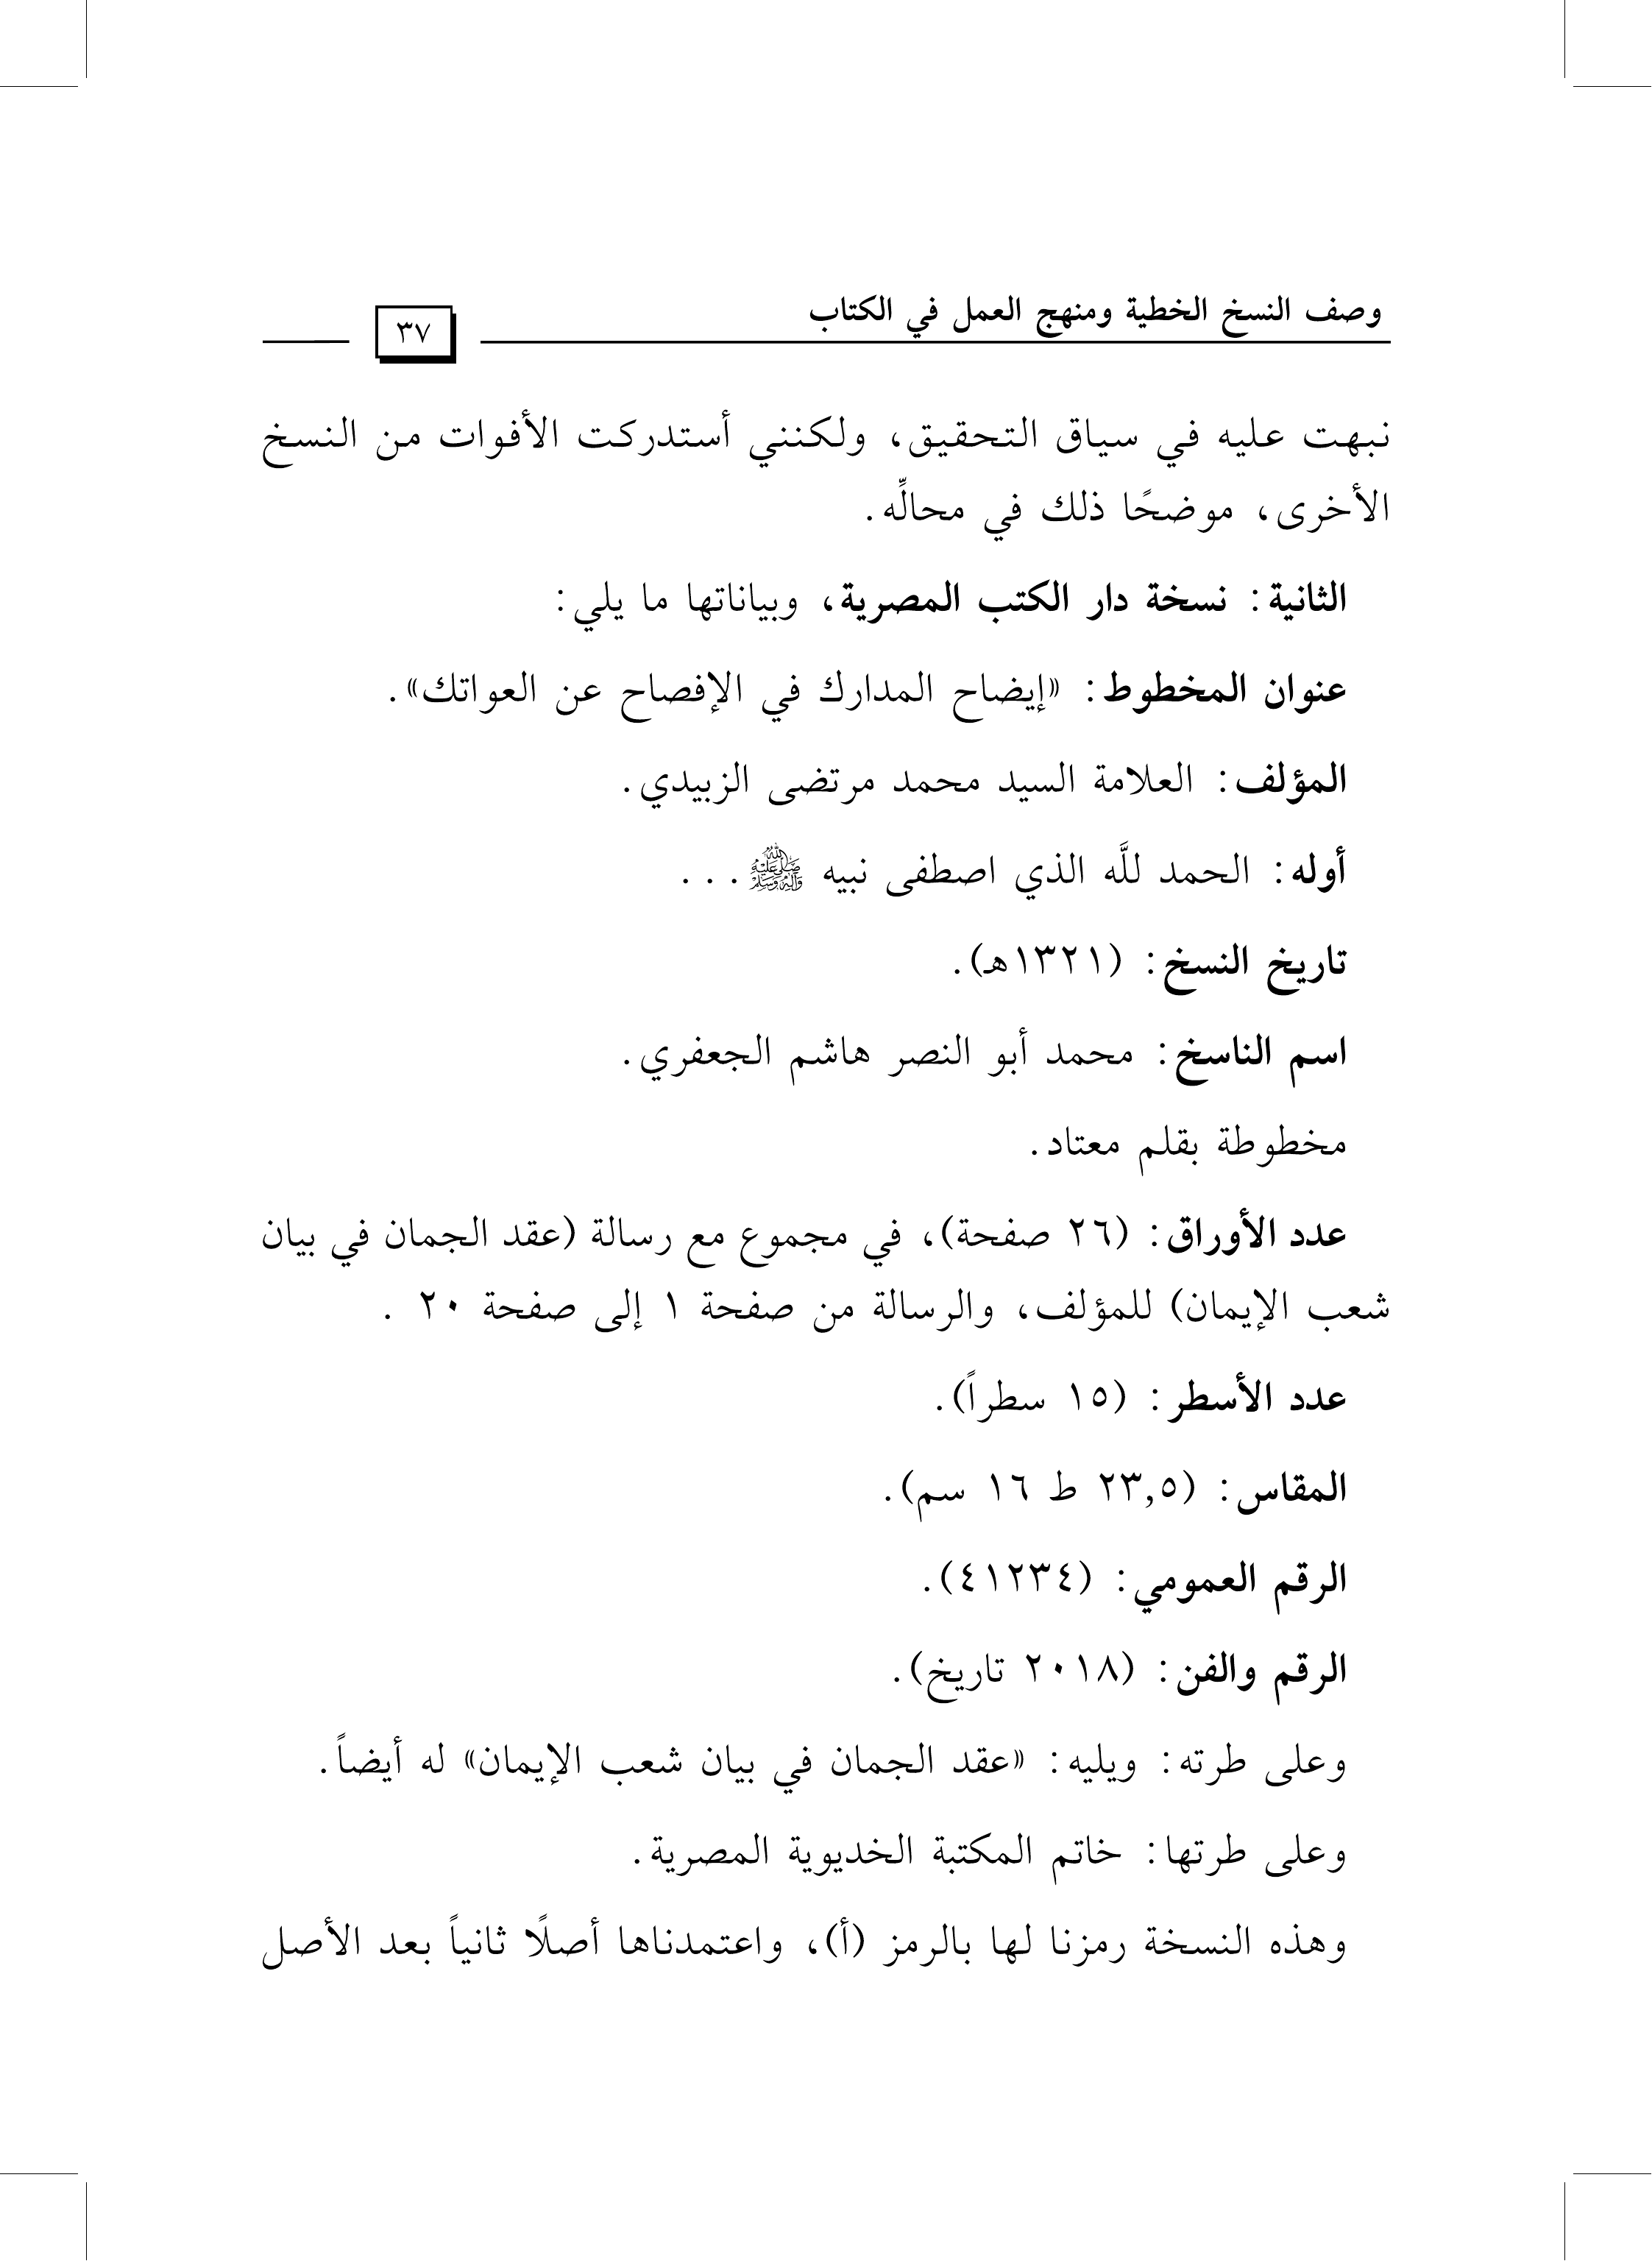 وصف النسخ الخطية ومنهج العمل في الكتاب
٣٧
نبهت عليه في سياق التحقيق، ولكنني أستدركت الأفوات من النسخ
الأخرى، موضحًا ذلك في محالِّه.
الثانية: نسخة دار الكتب المصرية، وبياناتها ما يلي:
عنوان المخطوط: «إيضاح المدارك في الإفصاح عن العواتك».
المؤلف: العلامة السيد محمد مرتضى الزبيدي.
أوله: الحمد للَّه الذي اصطفى نبيه ﷺ...
تاريخ النسخ: (١٣٢١هـ).
اسم الناسخ: محمد أبو النصر هاشم الجعفري.
مخطوطة بقلم معتاد.
عدد الأوراق: (٢٦ صفحة)، في مجموع مع رسالة (عقد الجمان في بيان
شعب الإيمان) للمؤلف، والرسالة من صفحة ١ إلى صفحة ٢٠ .
عدد الأسطر: (١٥ سطراً).
المقاس: (٢٣,٥ ط ١٦ سم).
الرقم العمومي: (٤١٢٣٤).
الرقم والفن: (٢٠١٨ تاريخ).
وعلى طرته: ويليه: «عقد الجمان في بيان شعب الإيمان» له أيضاً.
وعلى طرتها: خاتم المكتبة الخديوية المصرية.
وهذه النسخة رمزنا لها بالرمز (أ)، واعتمدناها أصلًا ثانياً بعد الأصل